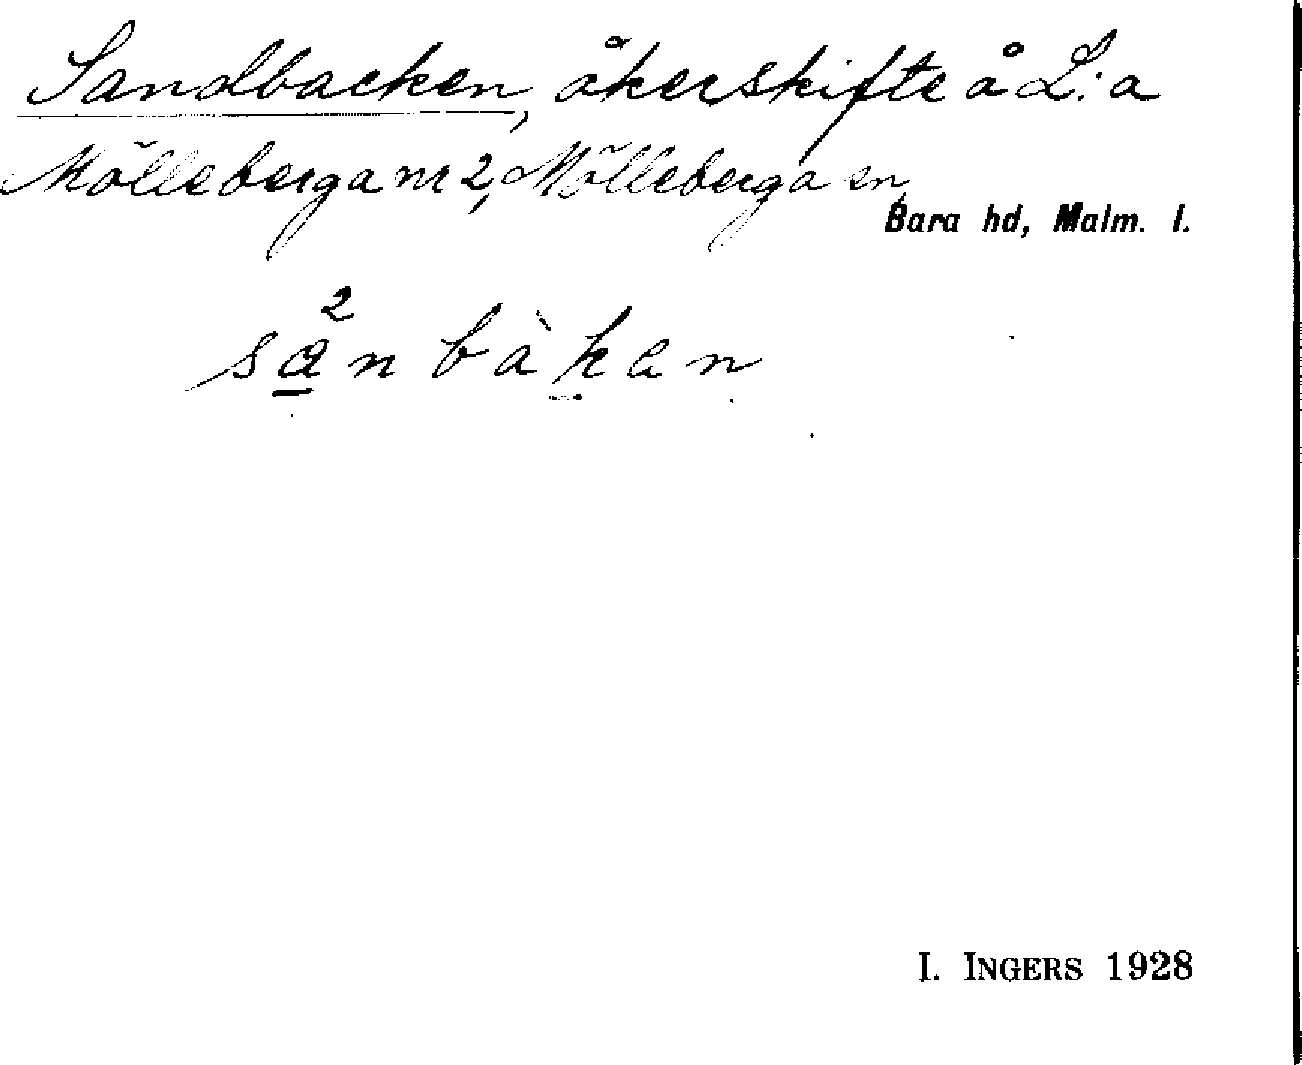 Sandbacken, åkerskifte å L:a
Mölleberga nr 2, Mölleberga sn,
Bara hd, Malm. l.
sa²n bàkan
I. INGERS 1928